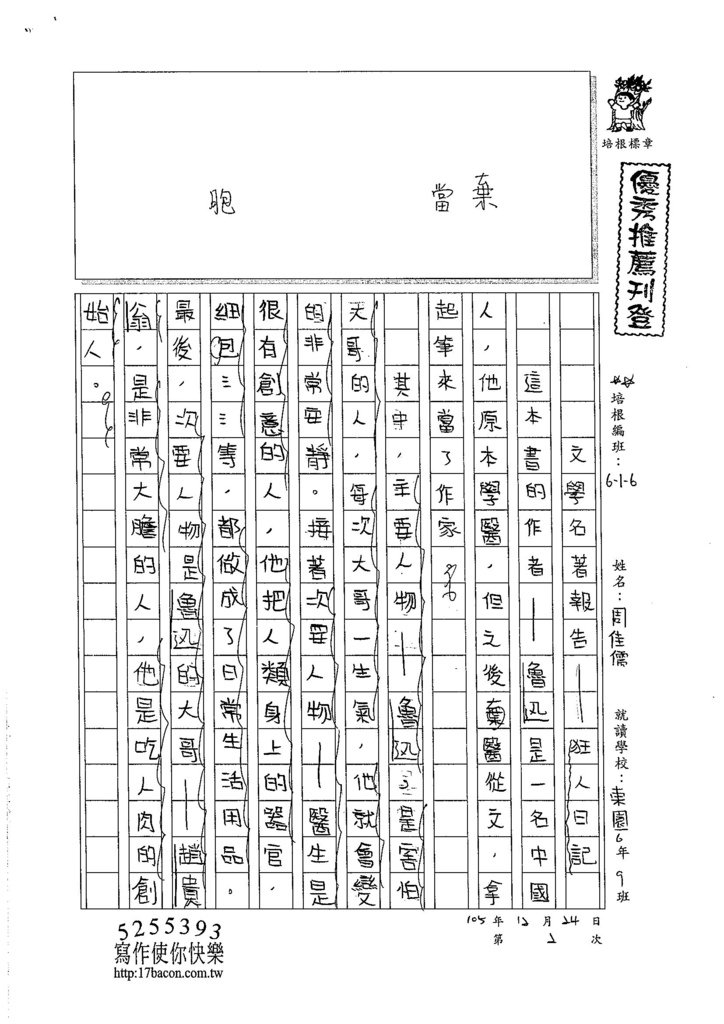 培根標章
優秀推薦刊登
棄
當
胞
培根編班：6-1-6
姓名：周佳儒
就讀學校：東園6年9班
文學名著報告——狂人日記
這本書的作者——魯迅是一名中國
人，他原本學醫，但之後棄醫從文，拿
起筆來當了作家
其中，主要人物——魯迅是害怕
大哥的人，每次大哥一生氣，他就會變
的非常安靜。接著次要人物——醫生是
很有創意的人，他把人類身上的器官，
細包……等，都做成了日常生活用品。
最後，次要人物是魯迅的大哥——趙貴
翁，是非常大膽的人，他是吃人肉的創
始人。
105年12月24日
第2次
5255393
寫作使你快樂
http:17bacon.com.tw